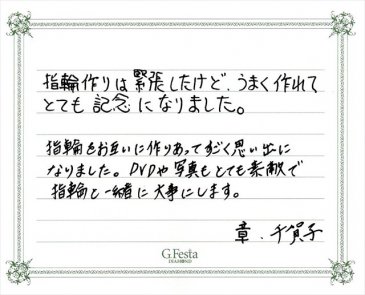 指輪作りは緊張したけど、うまく作れて
とても記念になりました。
指輪をお互いに作りあってすごく思い出に
なりました。DVDや写真もとても素敵で
指輪と一緒に大事にします。
章・千賀子
G.Festa
DIAMOND